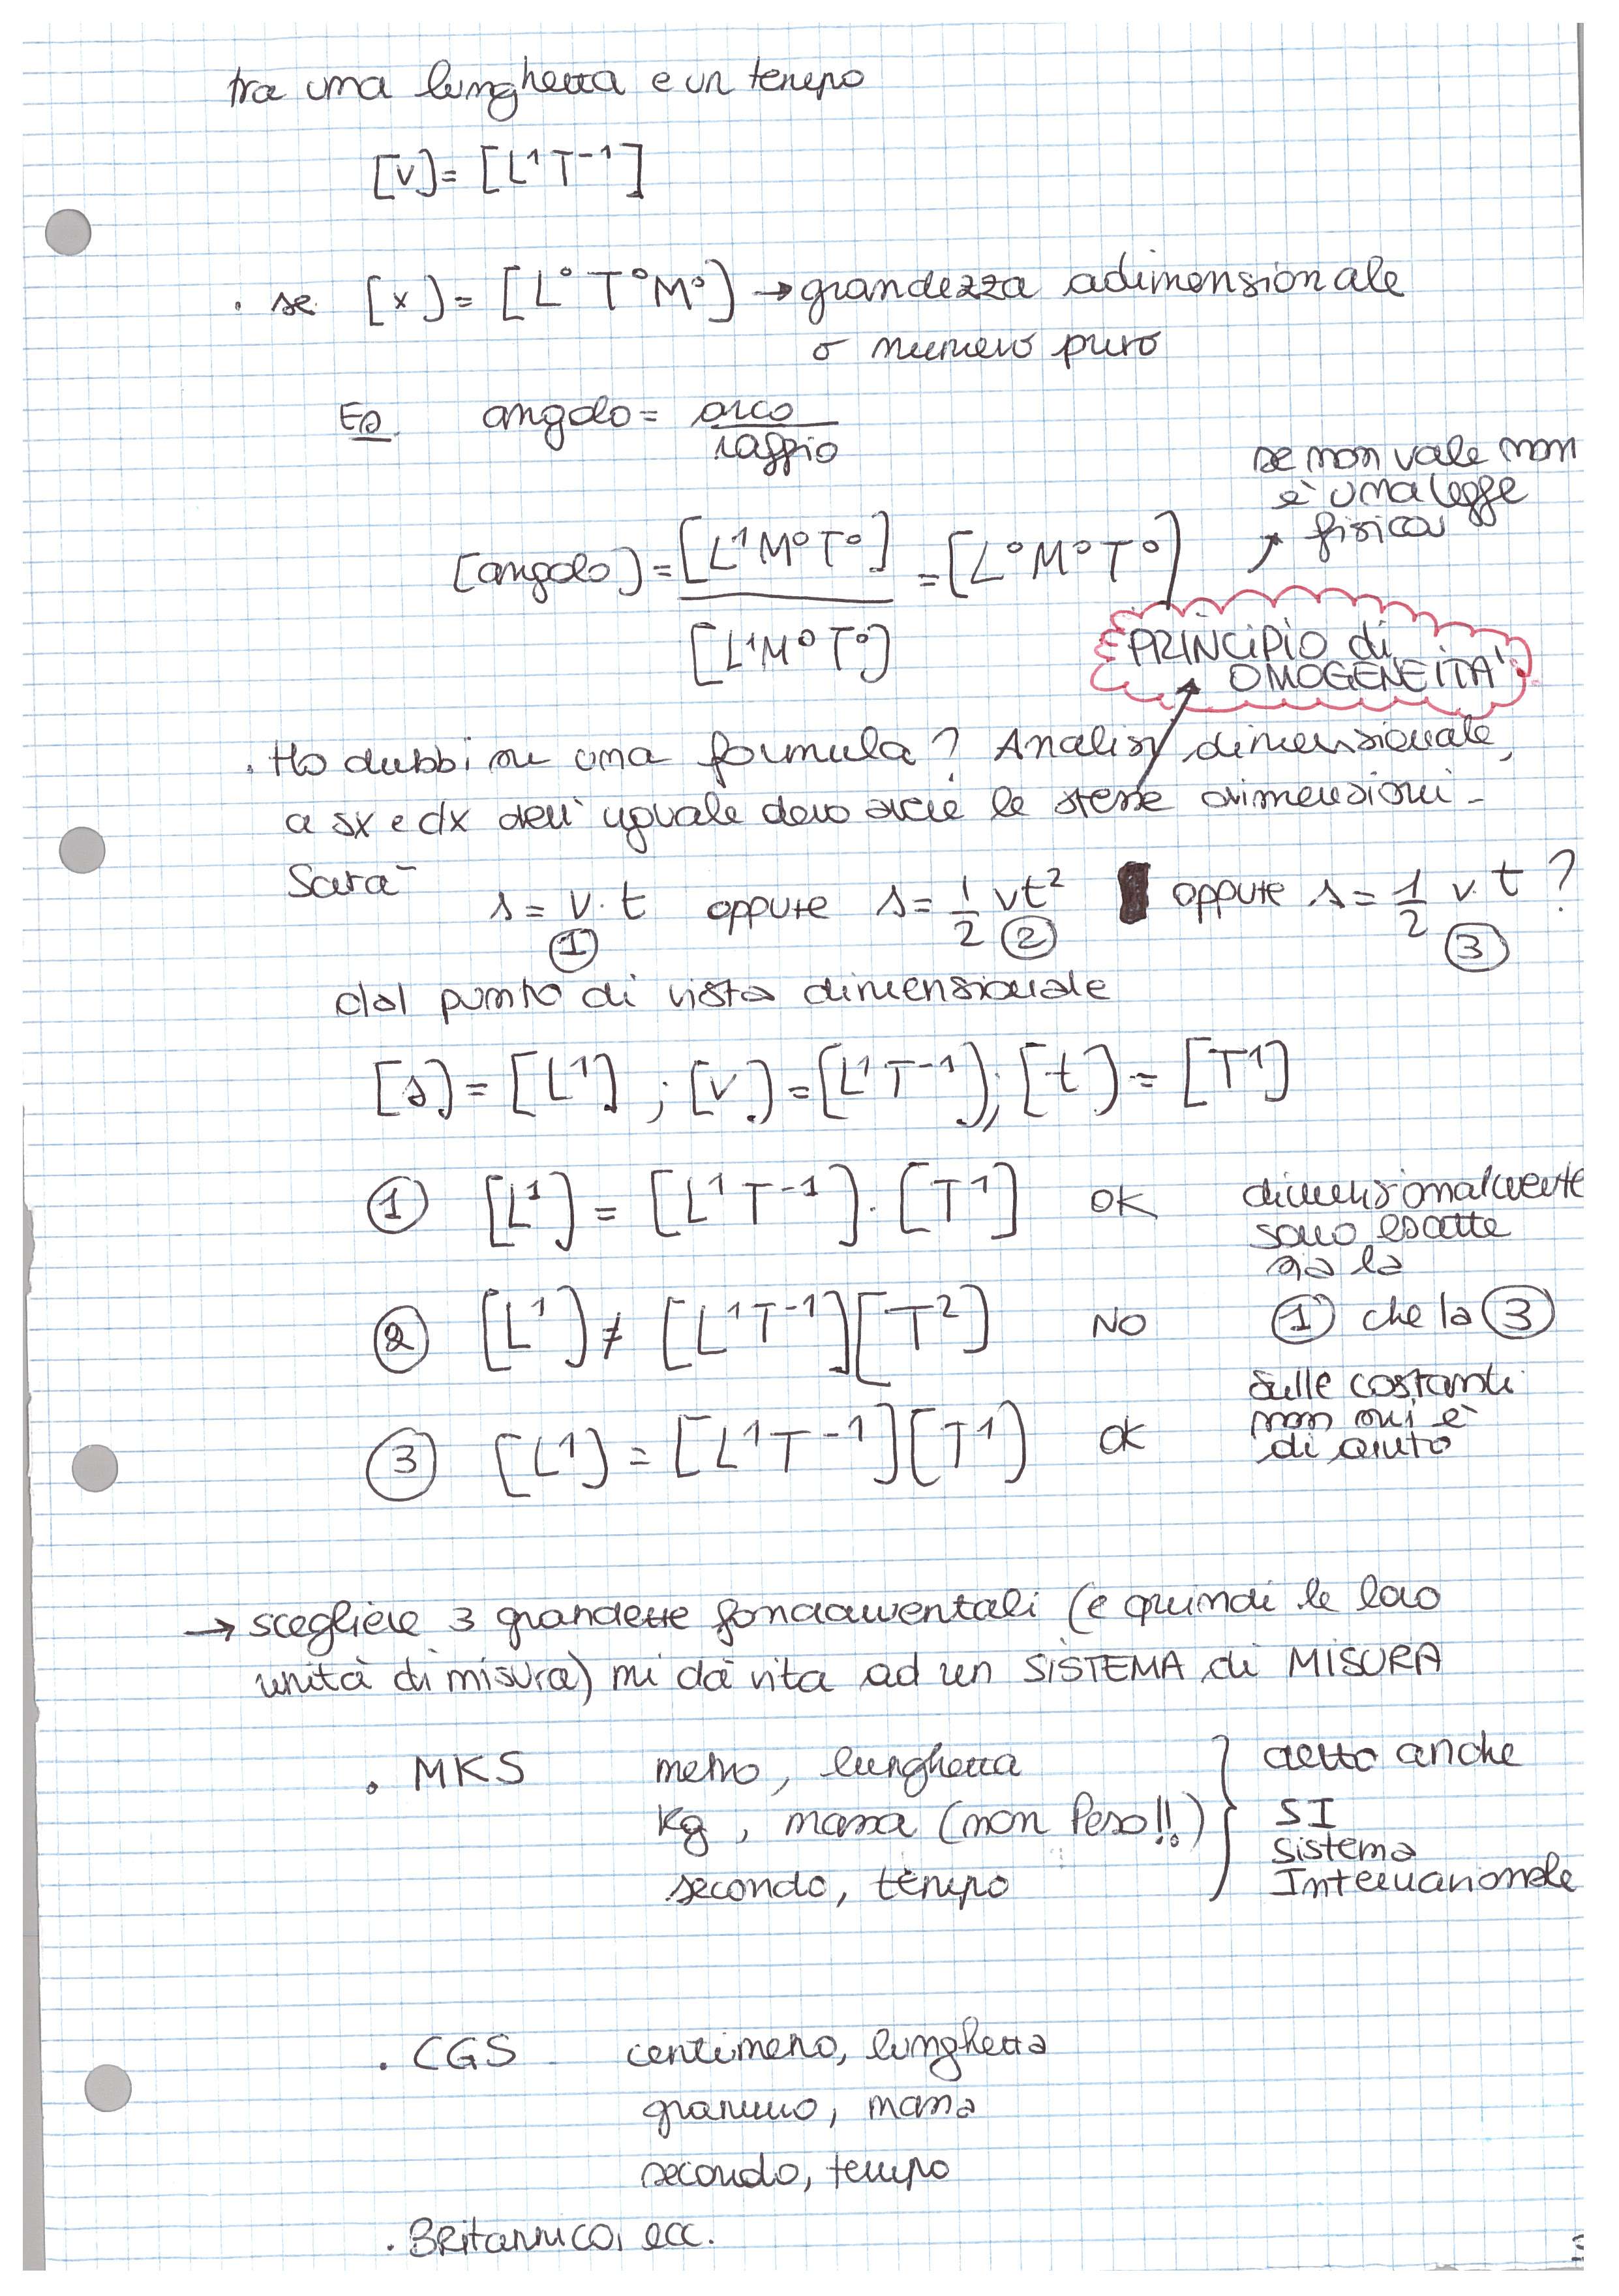 tra una lunghezza e un tempo
[v] = [L¹T⁻¹]
. se [x] = [L⁰T⁰M⁰] → grandezza adimensionale
o numero puro
Es. angolo = arco / raggio
se non vale non
è una legge
fisica
[angolo] = [L¹M⁰T⁰] / [L¹M⁰T⁰] = [L⁰M⁰T⁰]
PRINCIPIO di
OMOGENEITA'
. Ho dubbi su una formula? Analisi dimensionale,
a sx e dx dell'uguale devo avere le stesse dimensioni -
Sarà s = v·t oppure s = 1/2 vt² oppure s = 1/2 v·t ?
① ② ③
dal punto di vista dimensionale
[s] = [L¹] ; [v] = [L¹T⁻¹]; [t] = [T¹]
① [L¹] = [L¹T⁻¹]·[T¹] OK
② [L¹] ≠ [L¹T⁻¹][T²] NO
③ [L¹] = [L¹T⁻¹][T¹] OK
dimensionalmente
sono esatte
sia la
① che la ③
sulle costanti
non mi è
di aiuto
→ scegliere 3 grandezze fondamentali (e quindi le loro
unità di misura) mi dà vita ad un SISTEMA di MISURA
. MKS metro, lunghezza
Kg, massa (non Peso!!)
secondo, tempo
detto anche
SI
Sistema
Internazionale
. CGS centimetro, lunghezza
grammo, massa
secondo, tempo
. BRitannico, ecc.
3